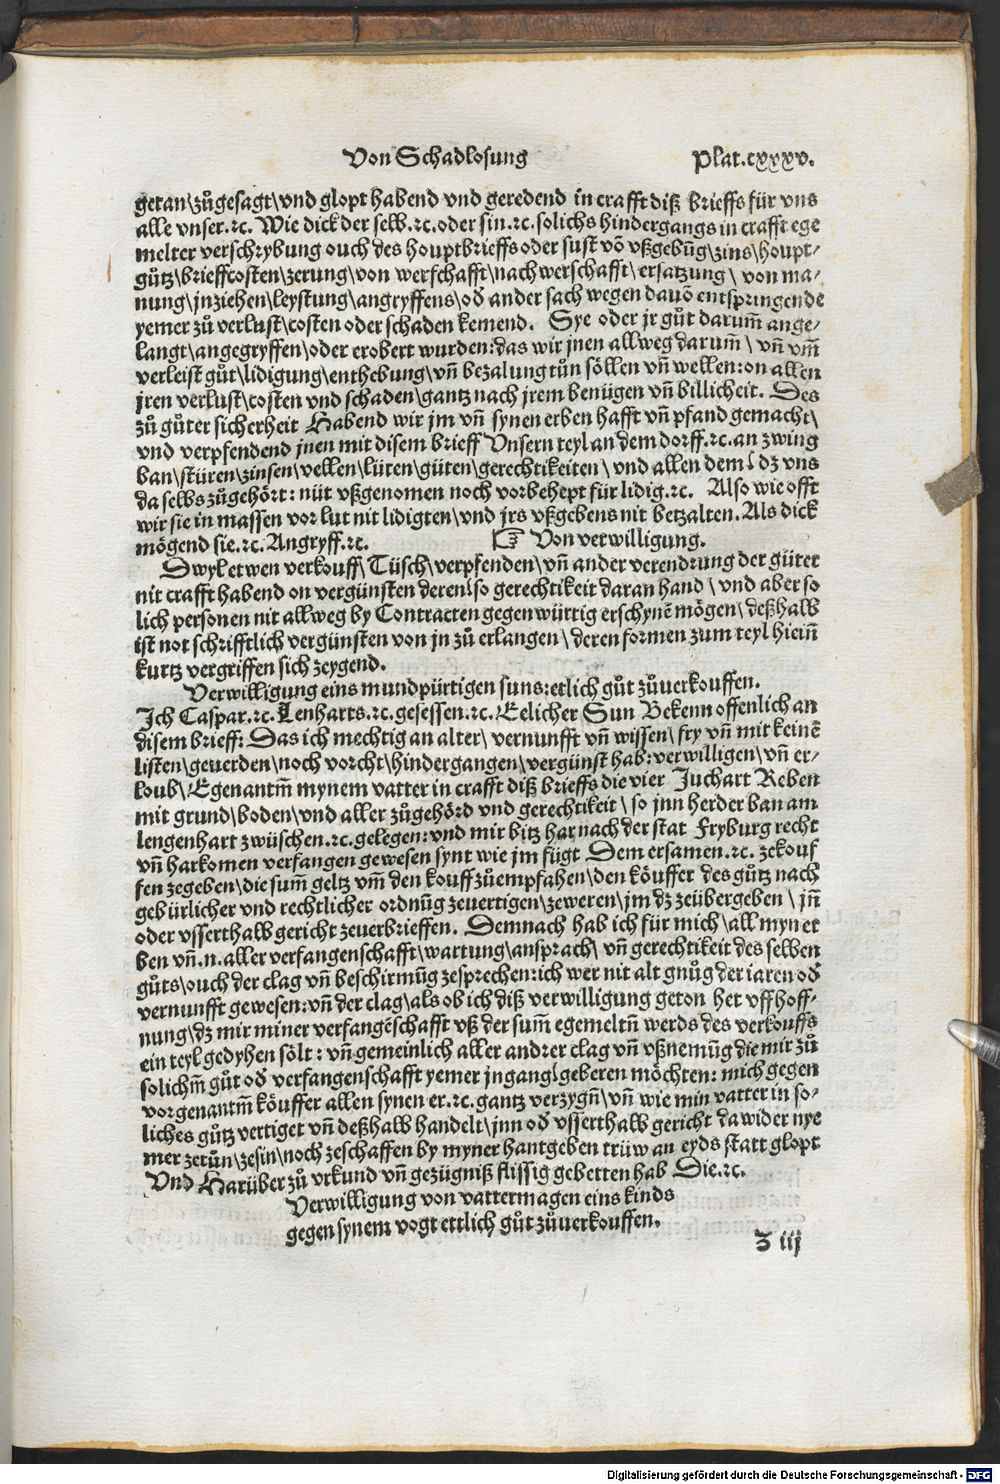 Von Schadlosung Plat.cxxxv.
getan\zůgesagt\vnd glopt habend vnd geredend in crafft diß brieffs für vns
alle vnser.⁊c. Wie dick der selb.⁊c.oder sin.⁊c.solichs hindergangs in crafft ege
melter verschrybung ouch des houptbrieffs oder sust võ vßgebũg\zins\houpt⸗
gůtz\brieffcosten\zerung\von werschafft\nachwerschafft\ersatzung\ von ma⸗
nung\jnziehen\leystung\angryffens\od̄ ander sach wegen dauõ entspringende
yemer zů verlust\costen oder schaden kemend. Sye oder jr gůt darum̃ ange⸗
langt\angegryffen\oder erobert wurden:das wir jnen allweg darum̃\ vñ vm̃
verleist gůt\lidigung\enthebung\vñ bezalung tůn söllen vñ wellen:on allen
jren verlust\costen vnd schaden\gantz nach jrem benügen vñ billicheit. Des
zů gůter sicherheit Habend wir jm vñ synen erben hafft vñ pfand gemacht\
vnd verpfendend jnen mit disem brieff Vnsern teyl an dem dorff.⁊c.an zwing
ban\stüren\zinsen\vellen\lüten\güten\gerechtikeiten\ vnd allen dem\ dz vns
da selbs zůgehört: nüt vßgenomen noch vorbehept für lidig.⁊c. Also wie offt
wir sie in massen vor lut nit lidigten\vnd jrs vßgebens nit betzalten. Als dick
mögend sie.⁊c. Angryff.⁊c. ☞ Von verwilligung.
Dwyl etwen verkouff\ Tüsch\verpfenden\ vñ ander verendrung der güter
nit crafft habend on vergünsten deren\so gerechtikeit daran hand\ vnd aber so
lich personen nit allweg by Contracten gegenwürtig erschynẽ mögen\ deßhalb
ist not schrifftlich vergünsten von jn zů erlangen\ deren formen zum teyl hieiñ
kurtz vergriffen sich zeygend.
Verwilligung eins mundpürtigen suns:etlich gůt zůuerkouffen.
Ich Caspar.⁊c. Lenharts.⁊c. gesessen.⁊c. Eelicher Sun Bekenn offenlich an
disem brieff: Das ich mechtig an alter\ vernunfft vñ wissen\ fry vñ mit keinẽ
listen\geuerden\noch vorcht\hindergangen\vergünst hab:verwilligen\vñ er⸗
loub\ Egenantm̃ mynem vatter in crafft diß brieffs die vier Juchart Reben
mit grund\boden\vnd aller zůgehörd vnd gerechtikeit\ so jnn herder ban am
lengenhart zwüschen.⁊c.gelegen:vnd mir bitz har nach der stat Fryburg recht
vñ harkomen verfangen gewesen synt wie jm fügt Dem ersamen.⁊c. zekouf
fen zegeben\die sum̃ geltz vm̃ den kouff zůempfahen\den köuffer des gůtz nach
gebürlicher vnd rechtlicher ordnũg zeuertigen\zeweren\jm dz zeübergeben\ jñ
oder vsserthalb gericht zeuerbrieffen. Demnach hab ich für mich\all myn er
ben vñ.n.aller verfangenschafft\wartung\ansprach\ vñ gerechtikeit des selben
gůts\ouch der clag vñ beschirmũg zesprechen:ich wer nit alt gnůg der iaren od̄
vernunfft gewesen:vñ der clag\als ob ich diß verwilligung geton het vff hoff⸗
nung\dz mir miner verfangẽschafft vß der sum̃ egemeltñ werds des verkouffs
ein teyl gedyhen sölt: vñ gemeinlich aller andrer clag vñ vßnemũg die mir zů
solichm̃ gůt od̄ verfangenschafft yemer jngang\geberen möchten: mich gegen
vorgenantm̃ köuffer allen synen er.⁊c.gantz verzygñ\vñ wie min vatter in so⸗
liches gůtz vertiget vñ deßhalb handelt\jnn od̄ vsserthalb gericht da wider nye
mer zetůn\zesin\noch zeschaffen by myner hantgeben trüw an eyds statt glopt
Vnd Harüber zů vrkund vñ gezügniß flissig gebetten hab Die.⁊c.
Verwilligung von vattermagen eins kinds
gegen synem vogt ettlich gůt zůuerkouffen.
Z iij
Digitalisierung gefördert durch die Deutsche Forschungsgemeinschaft - DFG